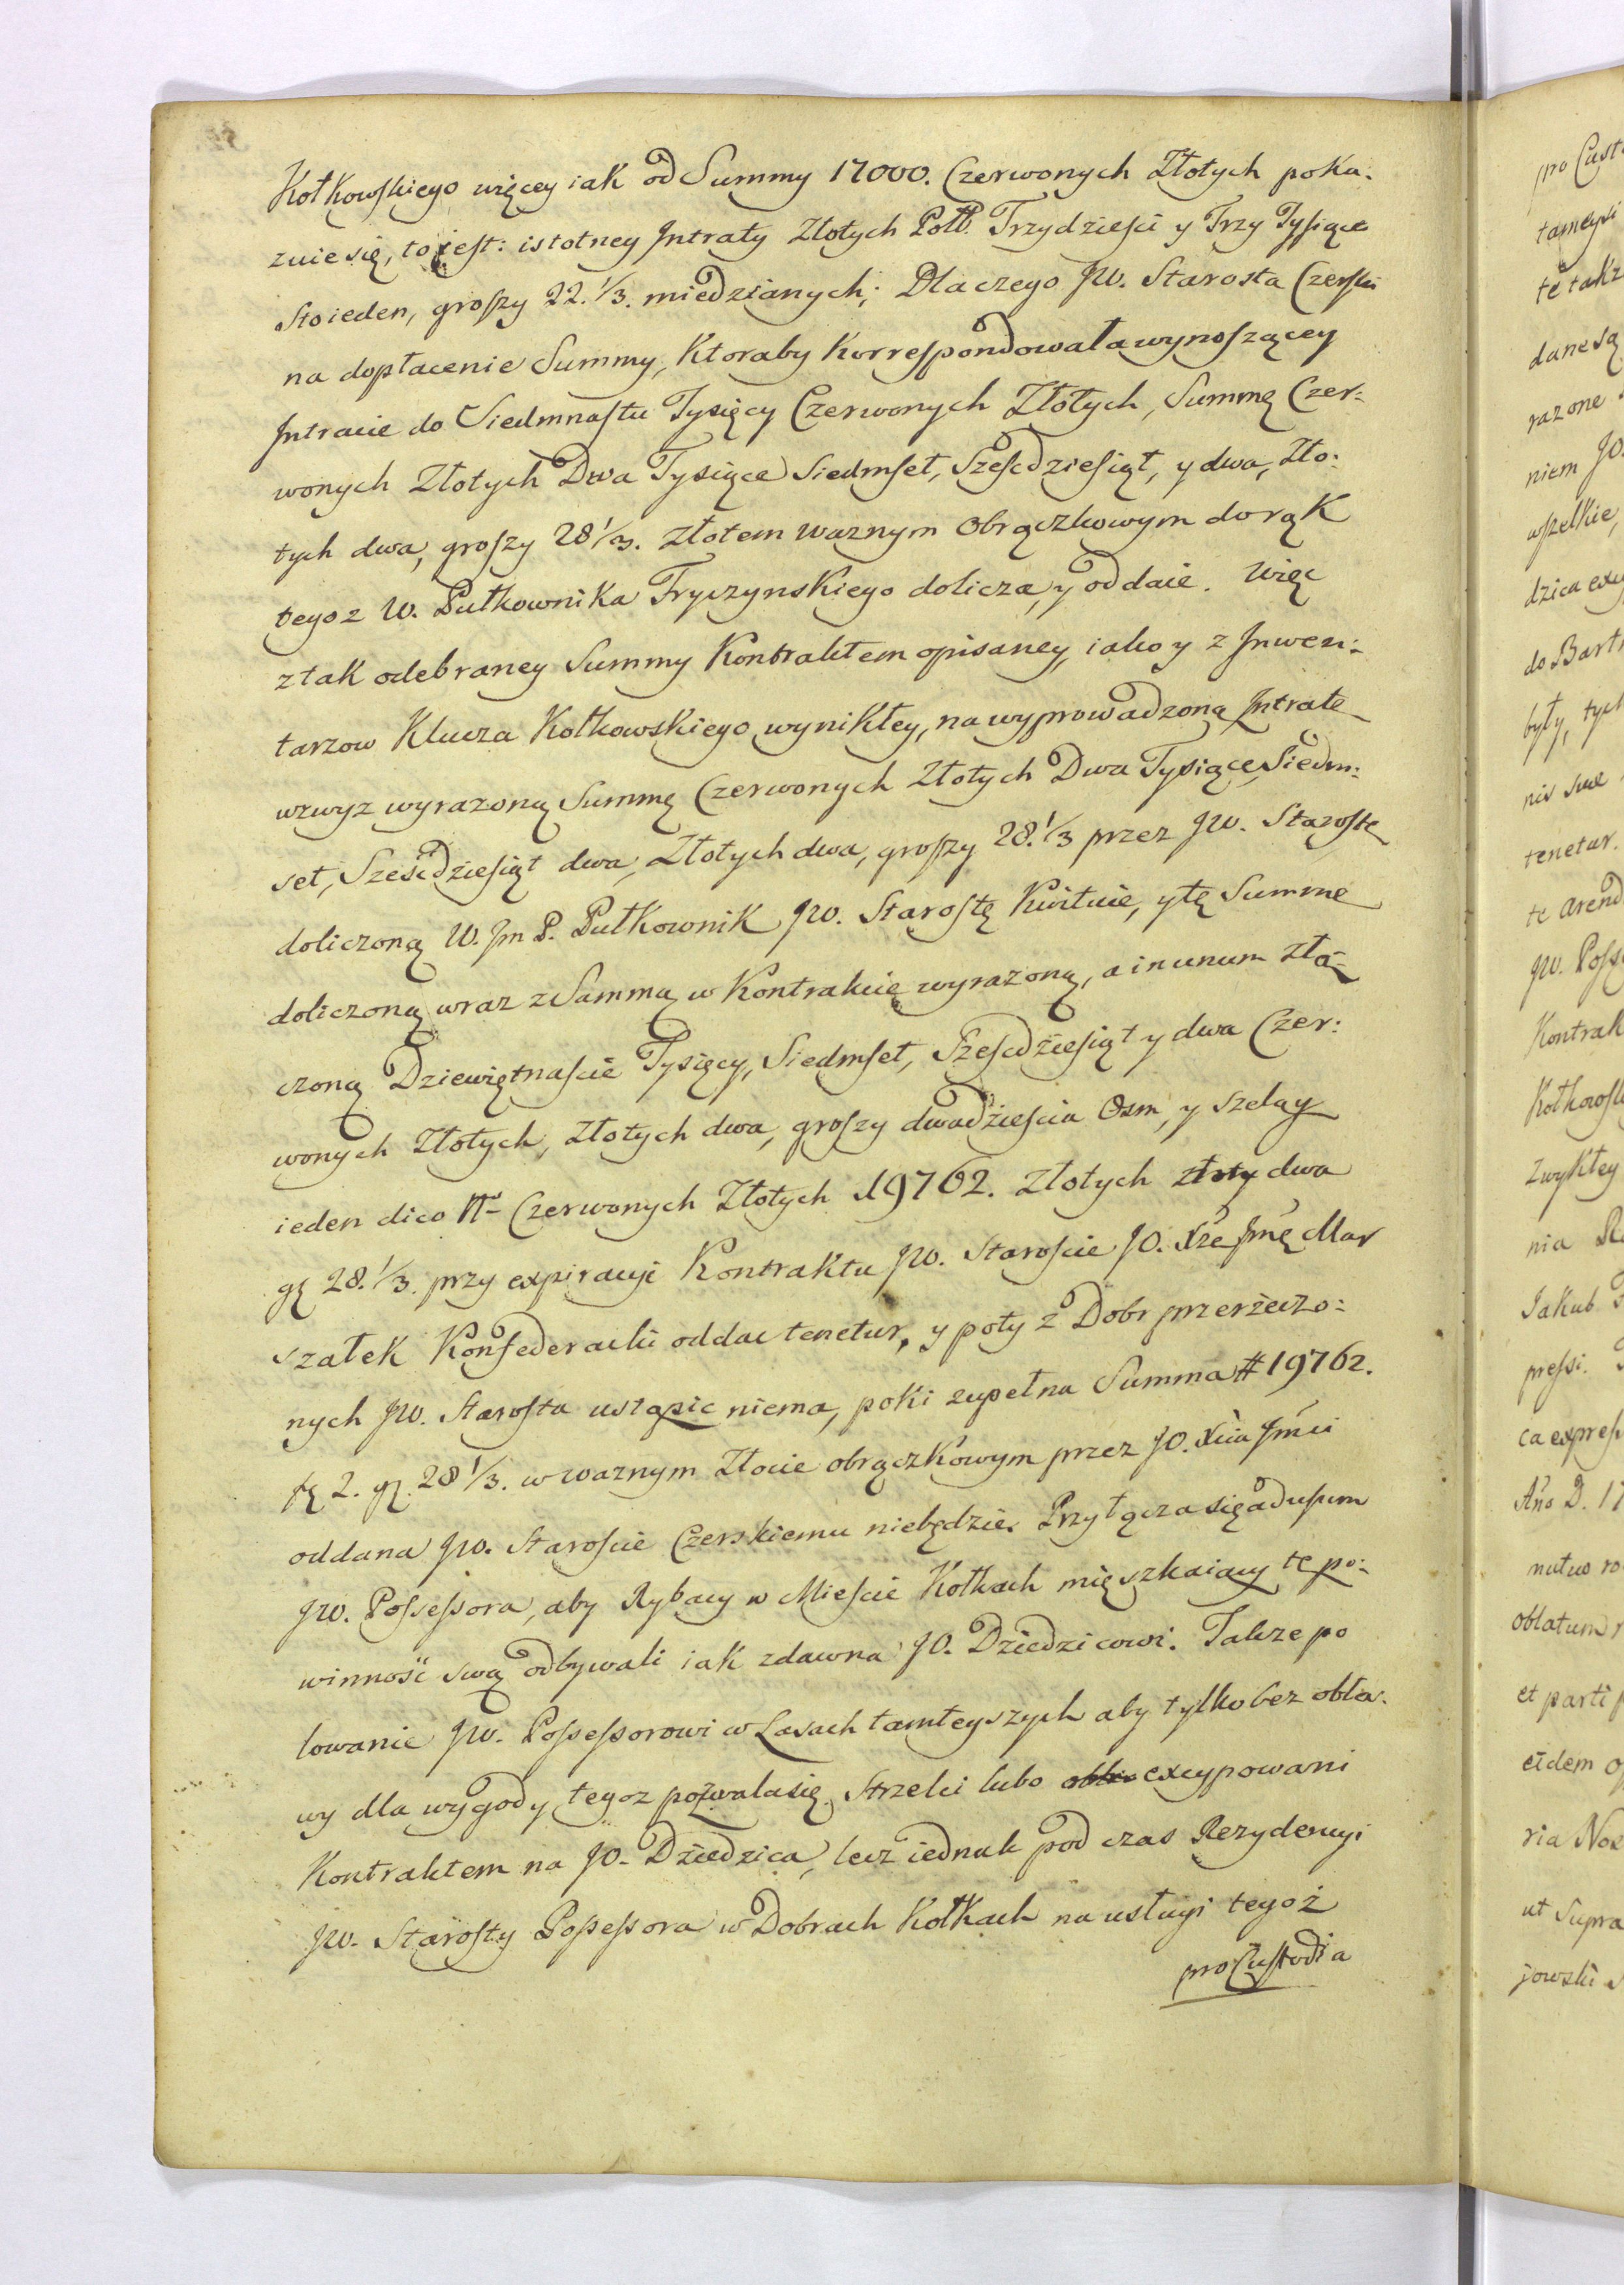 Kołkowskiego więcey iak od Summy 17000. Czerwonych Złotych poka:
zuie się, to iest: istotney Intraty Złotych Polł. Trzydziesci y Trzy Tysiące
Stoieden, groszy 22.⅓. miedzianych; Dlaczego JW. Starosta Czerski
na dopłacenie Summy, Ktoraby Korrespondowała wynoszącey
Intracie do Siedmnastu Tysięcy Czerwonych Złotych, Summę Czer:
wonych Złotych Dwa Tysiące Siedmset, Szescdziesiąt, y dwa, Zło:
tych dwa, groszy 28⅓. złotem waznym Obrączkowym do rąk
tegoz W. Pułkownika Tryczynskiego dolicza, y oddaie. Więc
z tak odebraney Summy Kontraktem opisaney, iako y z Inwen:
tarzow Klucza Kołkowskiego wynikłey, na wyprowadzoną Intratę
wzwyz wyrazoną Summę Czerwonych Złotych Dwa Tysiące, Siedm:
set, Sześcdziesiąt dwa, Złotych dwa, groszy 28.⅓ przez JW. Starostę
doliczoną W. Jm P. Pułkownik JW. Starostę Kwituie, y tę Summę
doliczoną wraz z Summą w Kontrakcie wyrazoną, a in unum złą:
czoną Dziewiętnaście Tysięcy, Siedmset, Szescdziesiąt y dwa Czer:
wonych Złotych, Złotych dwa, groszy dwadzieścia Osm, y szeląg
ieden dico Nro Czerwonych Złotych 19762. Złotych złoty dwa
gł 28.⅓. przy expiracyi Kontraktu JW. Staroście JO. Xże Jmę Mar
szałek Konfederacki oddac tenetur, y poty z Dobr przerżeczo:
nych JW. Starosta ustąpic niema, poki zupełna Summa # 19762.
fł 2. gł. 28⅓. w waznym Złocie obrączkowym przez JO. Xcia Jmci
oddana JW. Staroście Czerskiemu niebędzie. Przyłącza się ad usum
JW. Possessora, aby Rybacy w Mieście Kołkach mięszkaiący tę po:
winność swą odbywali iak zdawna JO. Dziedzicowi. Takze po
lowanie JW. Possessorowi w Lasach tamteyszych aby tylko bez obła:
wy dla wygody tegoz pozwala się. Strzelci lubo excypowani
Kontraktem na JO. Dziedzica, lecz iednak pod czas Rezydencyi
JW. Starosty Possessora w Dobrach Kołkach na usługi tegoż
pro Custodia